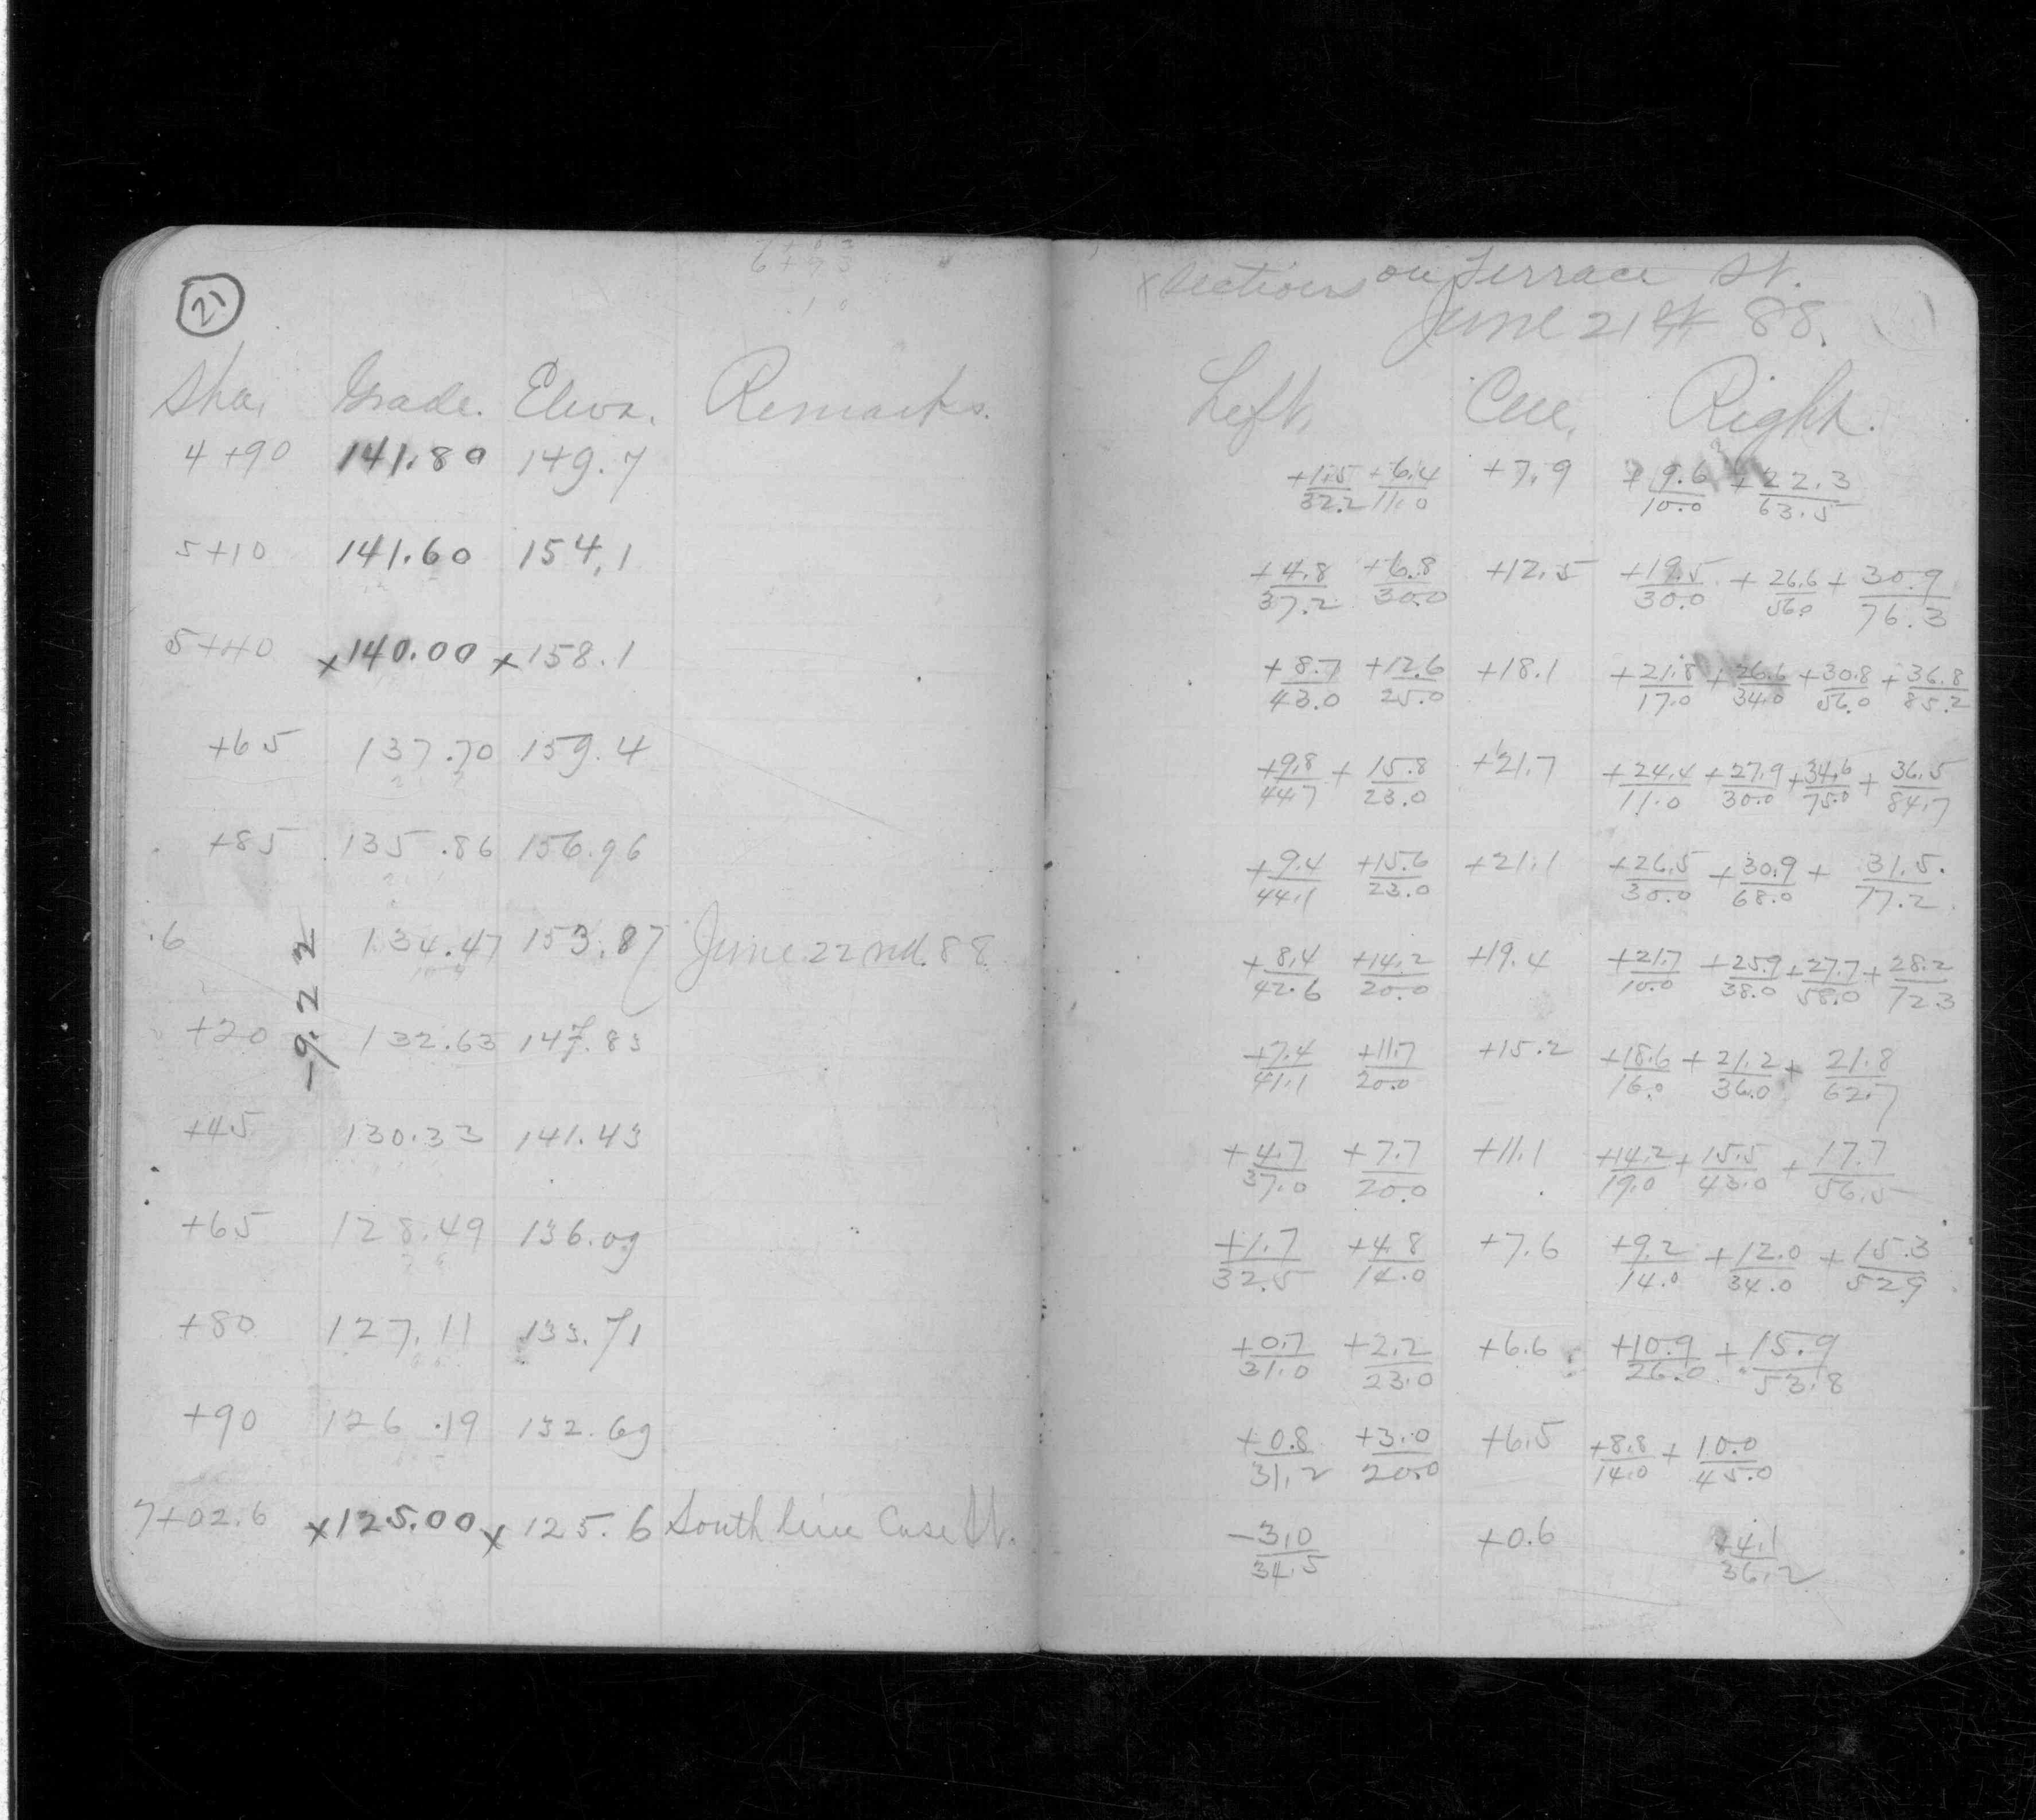 21
X Sections on Terrace St.
June 21st 88.
Sta. Grade. Eleva. Remarks. Left. Cen. Right.
4+90 141.80 149.7 +1.5/32.2 +6.4/11.0 +7.9 +9.6/10.0 +22.3/63.5
5+10 141.60 154.1 +4.8/37.2 +6.8/30.0 +12.5 +19.5/30.0 +26.6/56.0 +30.9/76.3
5+40 x140.00 x158.1 +8.7/43.0 +12.6/25.0 +18.1 +21.8/17.0 +26.6/34.0 +30.8/56.0 +36.8/85.2
+65 137.70 159.4 +9.8/44.7 +15.8/23.0 +21.7 +24.4/11.0 +27.9/30.0 +34.6/75.0 +36.5/84.7
+85 135.86 156.96 +9.4/44.1 +15.6/23.0 +21.1 +26.5/30.0 +30.9/68.0 +31.5/77.2
6 134.47 153.87 June 22nd. 88 +8.4/42.6 +14.2/20.0 +19.4 +21.7/10.0 +25.9/38.0 +27.7/58.0 +28.2/72.3
-9.22
+20 132.63 147.83 +7.4/41.1 +11.7/20.0 +15.2 +18.6/16.0 +21.2/36.0 +21.8/62.7
+45 130.33 141.43 +4.7/37.0 +7.7/20.0 +11.1 +14.2/19.0 +15.5/43.0 +17.7/56.5
+65 128.49 136.09 +1.7/32.5 +4.8/14.0 +7.6 +9.2/14.0 +12.0/34.0 +15.3/52.9
+80 127.11 133.71 +0.7/31.0 +2.2/23.0 +6.6 +10.9/26.0 +15.9/53.8
+90 126.19 132.69 +0.8/31.2 +3.0/20.0 +6.5 +8.8/14.0 +10.0/45.0
7+02.6 x125.00 x125.6 South line Case St. -3.0/34.5 +0.6 +4.1/36.2